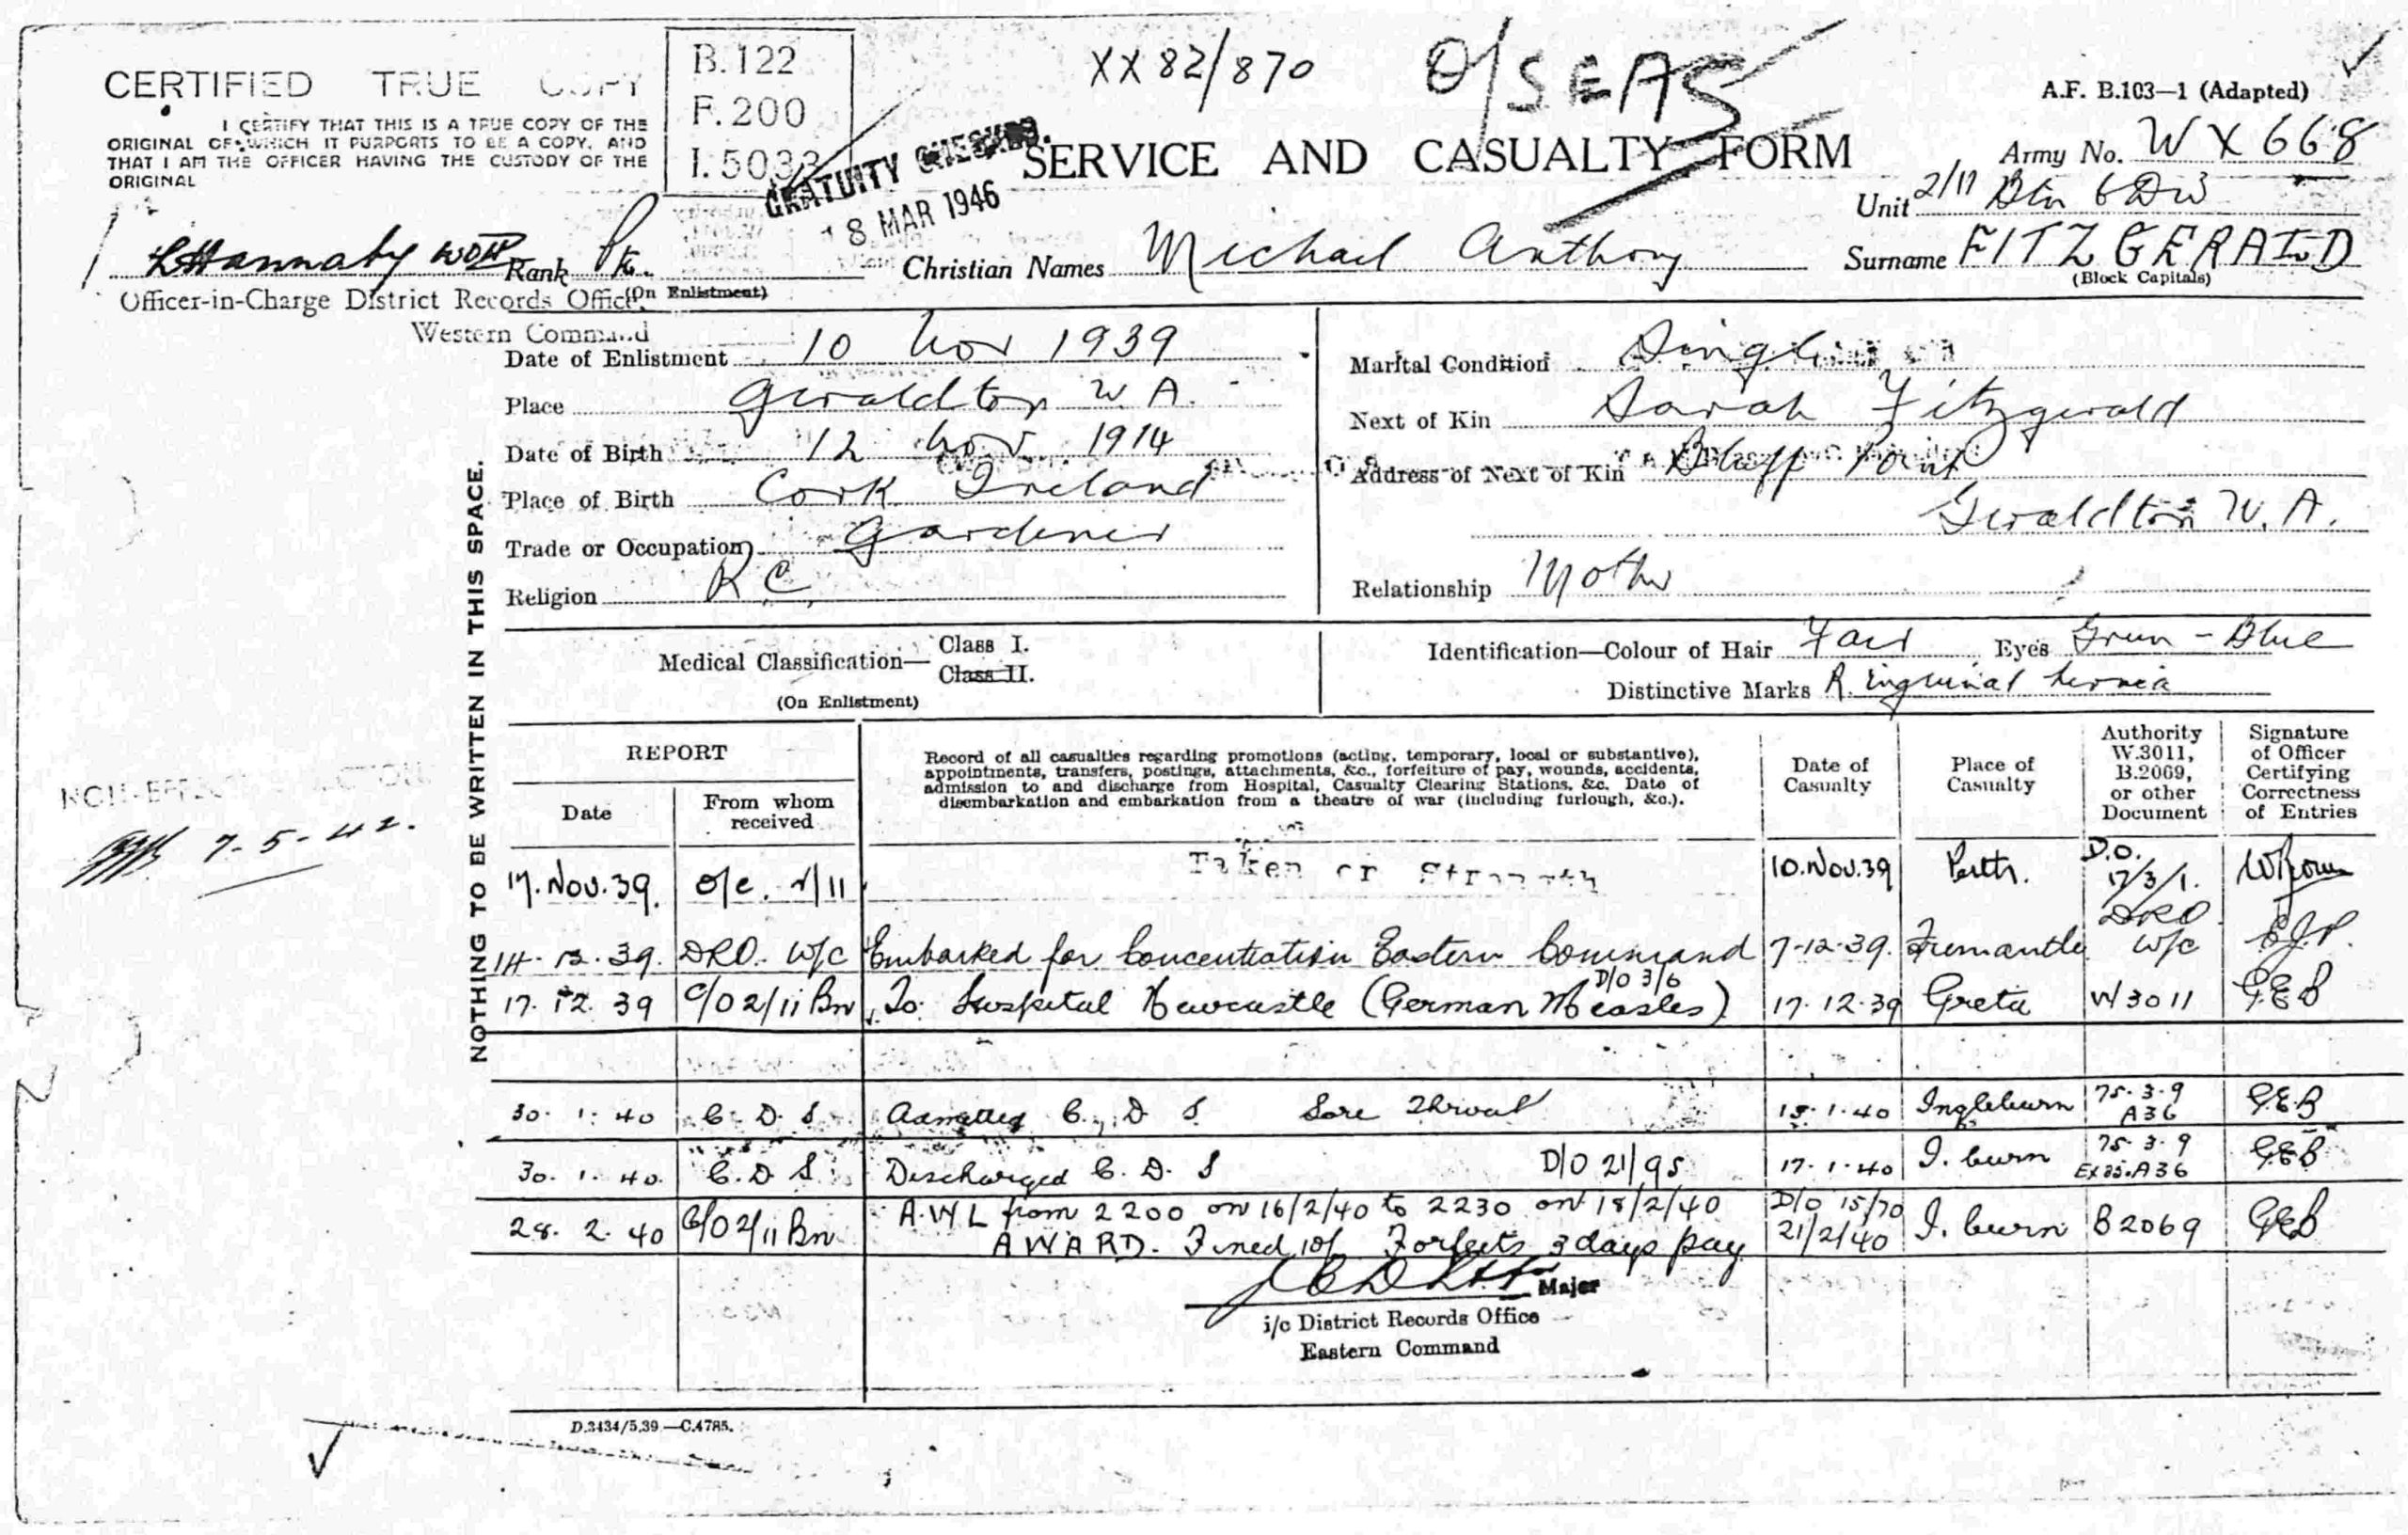 CERTIFIED TRUE COPY
I CERTIFY THAT THIS IS A TRUE COPY OF THE
ORIGINAL OF WHICH IT PURPORTS TO BE A COPY. AND
THAT I AM THE OFFICER HAVING THE CUSTODY OF THE
ORIGINAL
B.122
F.200
I.5033
XX 82/870
O/SEAS
A.F. B.103—1 (Adapted)
GRATUITY CHECKED.
18 MAR 1946
SERVICE AND CASUALTY FORM
Army No. WX668
Unit 2/11 Btn 6 Div
Rank Pte.
(On Enlistment)
Christian Names Michael Anthony
Surname FITZGERALD
(Block Capitals)
Officer-in-Charge District Records Office
Western Command
Date of Enlistment 10 Nov 1939
Place Geraldton W.A.
Date of Birth 12 Nov 1914
Place of Birth Cork Ireland
Trade or Occupation Gardener
Religion R.C.
Marital Condition Single
Next of Kin Sarah Fitzgerald
Address of Next of Kin Bluff Point
Geraldton W.A.
Relationship Mother
Medical Classification— Class I.
Class II.
(On Enlistment)
Identification—Colour of Hair Fair Eyes Green - Blue
Distinctive Marks R. Inguinal hernia
NOTHING TO BE WRITTEN IN THIS SPACE.
7-5-42.
REPORT
Date
From whom received
Record of all casualties regarding promotions (acting, temporary, local or substantive),
appointments, transfers, postings, attachments, &c., forfeiture of pay, wounds, accidents,
admission to and discharge from Hospital, Casualty Clearing Stations, &c. Date of
disembarkation and embarkation from a theatre of war (including furlough, &c.).
Date of Casualty
Place of Casualty
Authority W.3011, B.2069, or other Document
Signature of Officer Certifying Correctness of Entries
17. Nov. 39. O/C. 2/11 Taken on Strength 10. Nov. 39 Perth. D.O. 17/3/1.
14. 12. 39. DRO. W/C Embarked for Concentration Eastern Command 7-12-39. Fremantle DRO W/C E.J.P.
17. 12. 39 C/O 2/11 Bn To Hospital Newcastle (German Measles) D/O 3/6 17.12.39 Greta W3011 G.E.B
30. 1. 40 C. D. S Admitted C. D. S Sore Throat 15.1.40 Ingleburn 75.3.9 A36 G.E.B
30. 1. 40. C. D. S. Discharged C. D. S D/O 21/95 17.1.40 I. burn 75.3.9 A36 G.E.B
28. 2. 40 C/O 2/11 Bn A.W.L from 2200 on 16/2/40 to 2230 on 18/2/40 D/O 15/70
AWARD. Fined 10/- Forfeits 3 days pay 21/2/40 I. burn B2069 G.E.B
Major
i/c District Records Office
Eastern Command
D.3434/5.39.—C.4785.